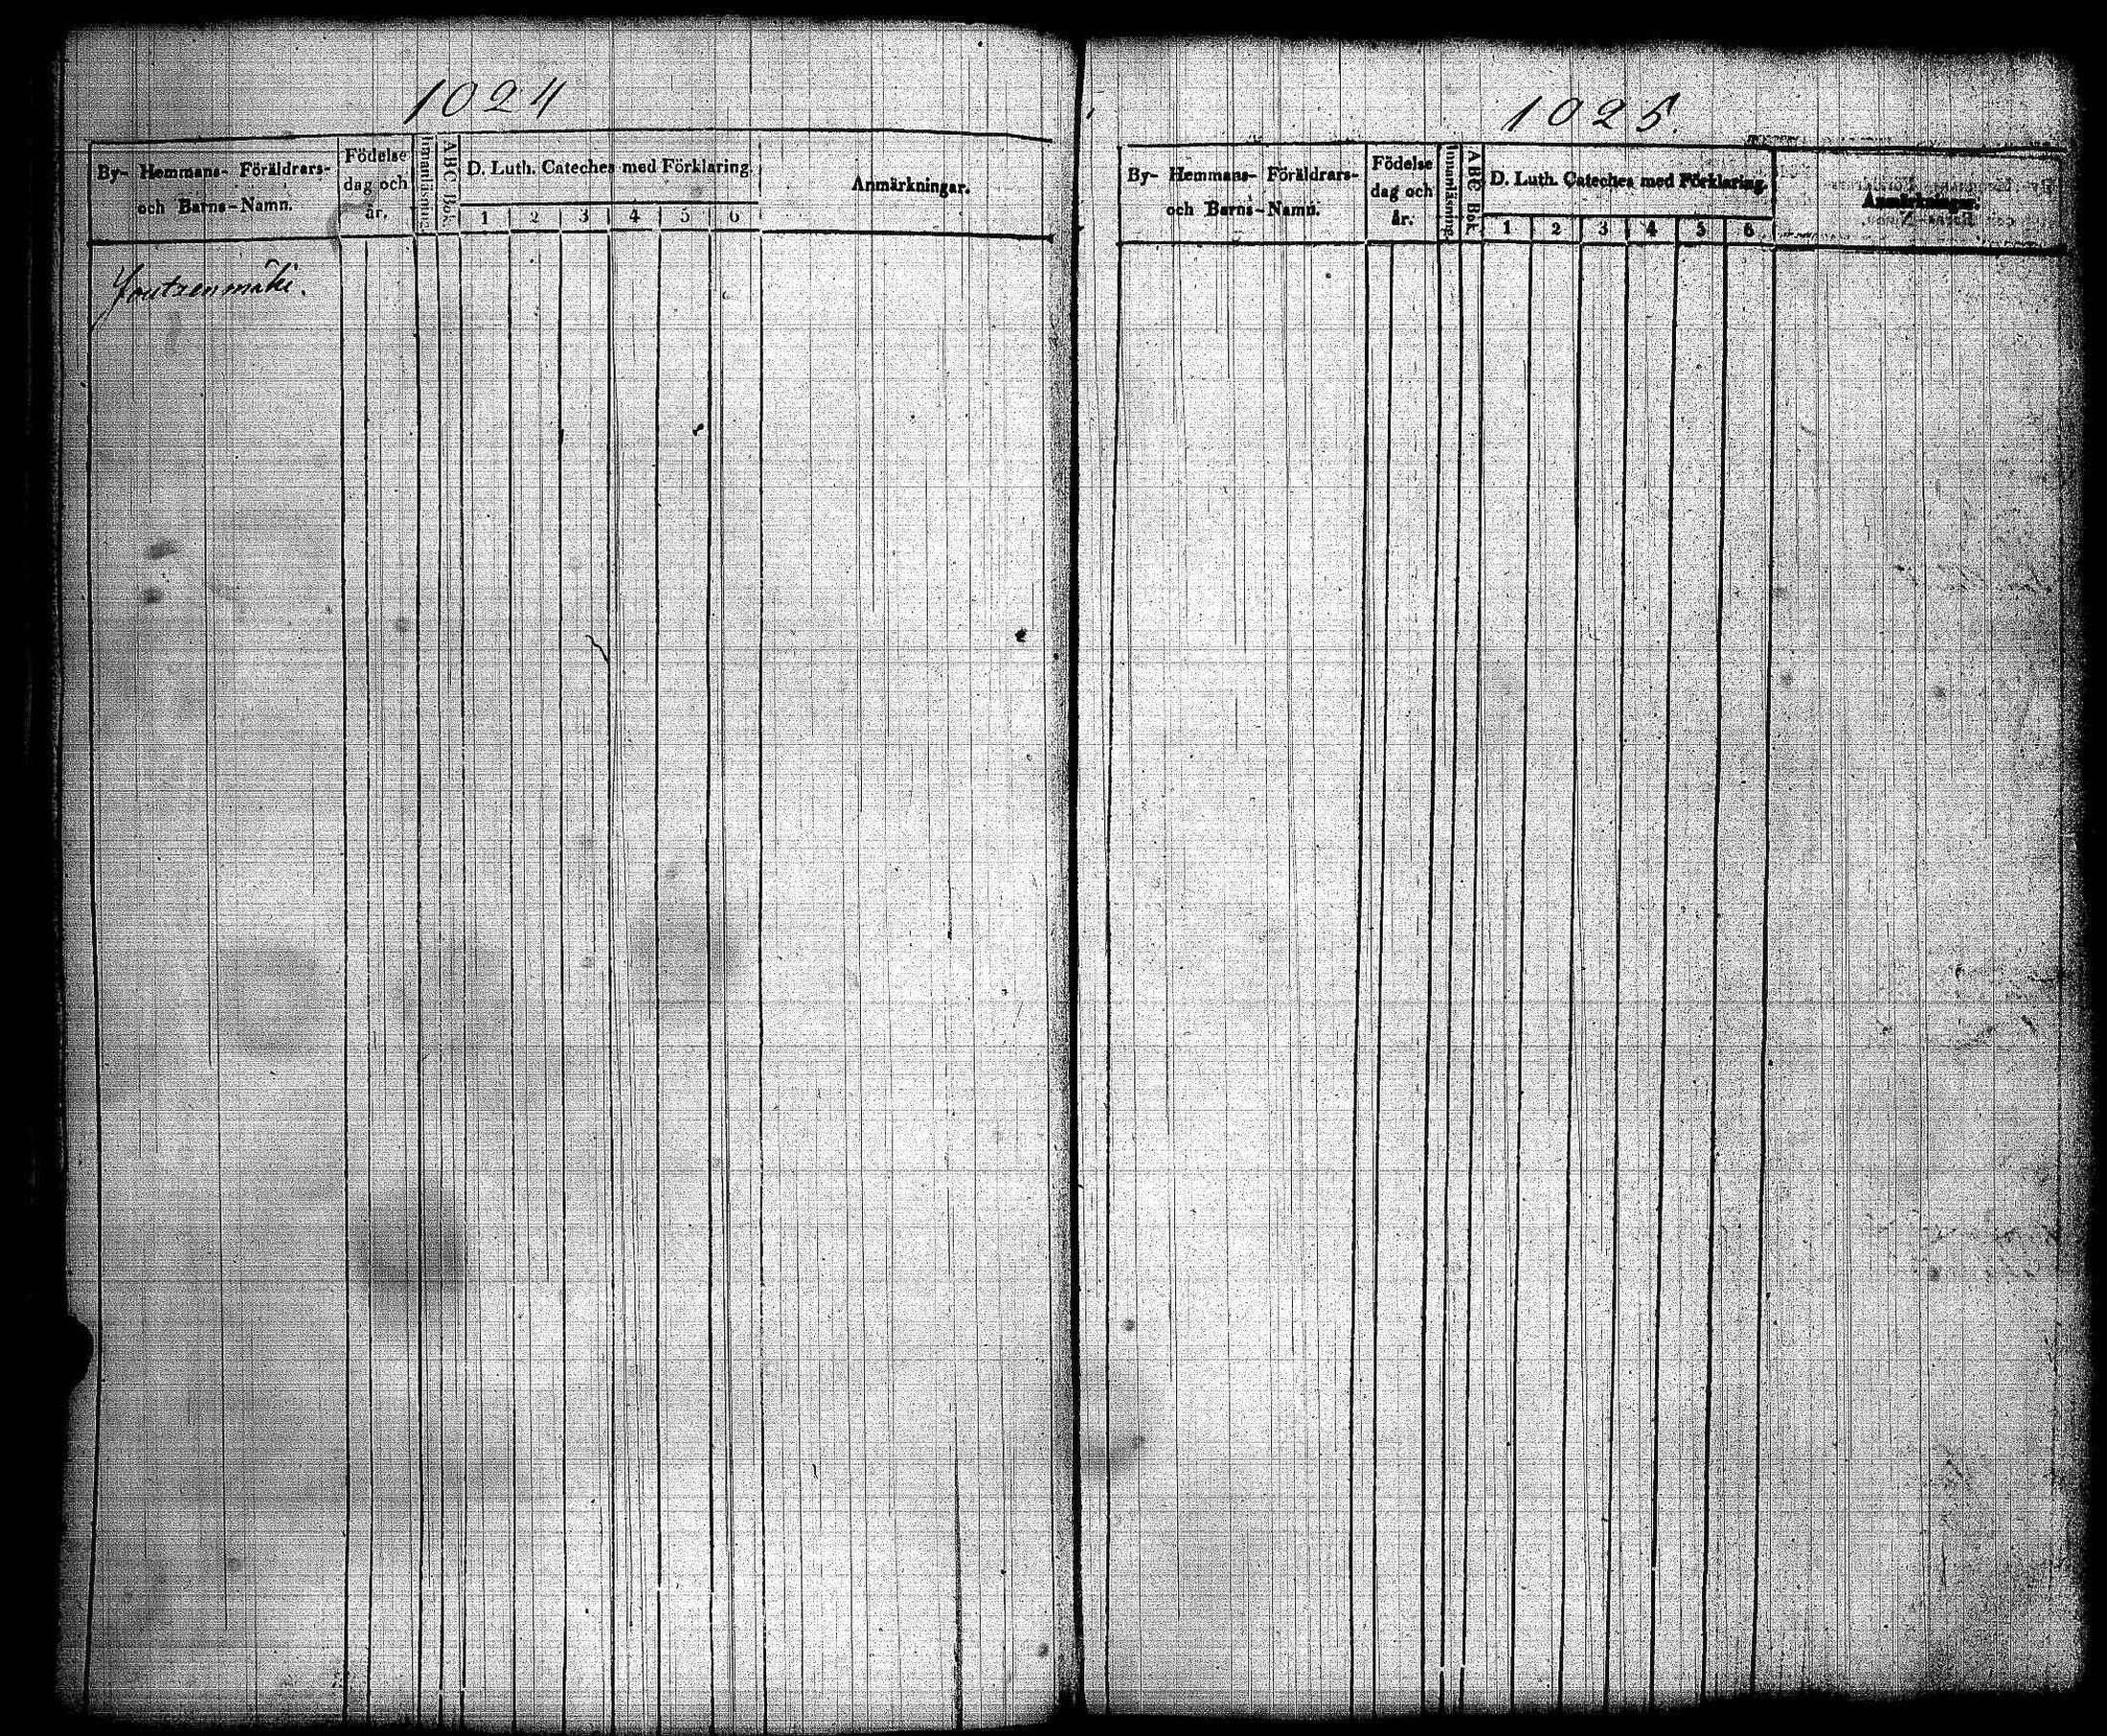 1024
By- Hemmans- Föräldrars-
och Barns-Namn.
Födelse
dag och
år.
Innanläsning.
ABC Bok.
D. Luth. Cateches med Förklaring.
1 2 3 4 5 6
Anmärkningar.
Joutzenmäki.
1025.
By- Hemmans- Föräldrars-
och Barns-Namn.
Födelse
dag och
år.
Innanläsning.
ABC Bok.
D. Luth. Cateches med Förklaring.
1 2 3 4 5 6
Anmärkningar.